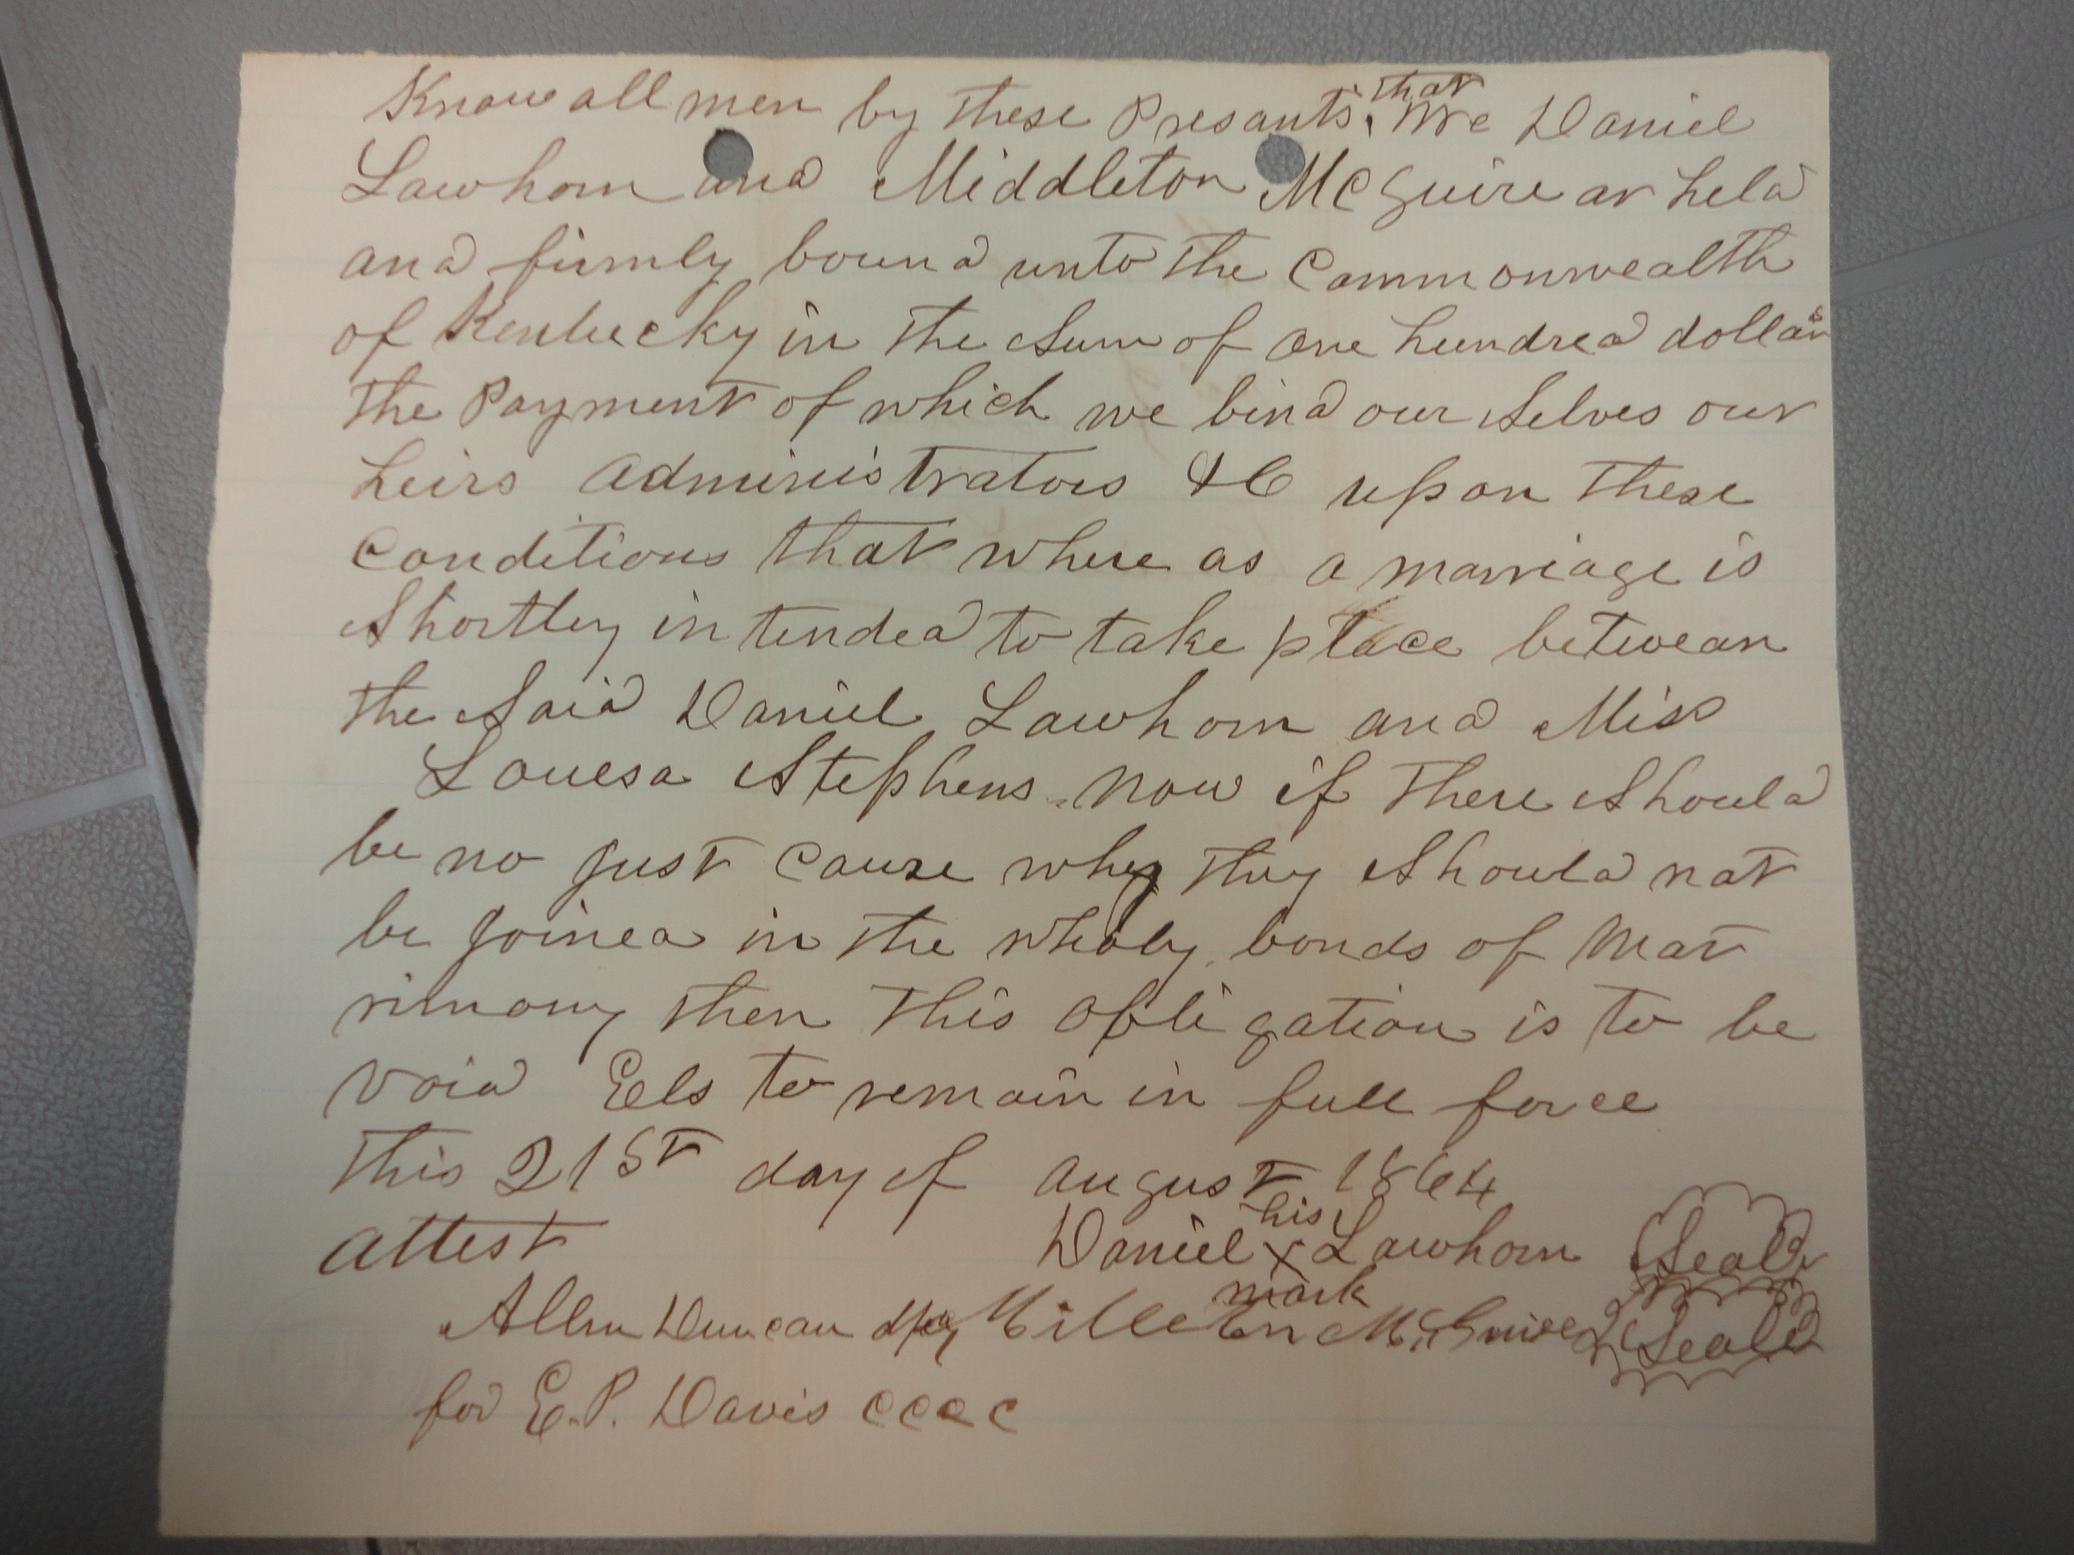 Know all men by these Presants, that We Daniel
Lawhorn and Middleton McGuire ar held
and firmly bound unto the Commonwealth
of Kentucky in the Sum of one hundred dollars
the Payment of which we bind our Selves our
heirs administrators &C upon these
Conditions that where as a marriage is
Shortley in tended to take place betwean
the Said Daniel Lawhorn and Miss
Louesa Stephens now if there Should
be no just Cause why they Should not
be joined in the wholy bonds of Mat
rimony then this obligation is to be
void Eels to remain in full force
this 21st day of august 1864
attest Daniel his X mark Lawhorn Seal
Allen Duncan McGuire Seal
for E. P. Davis CCCC